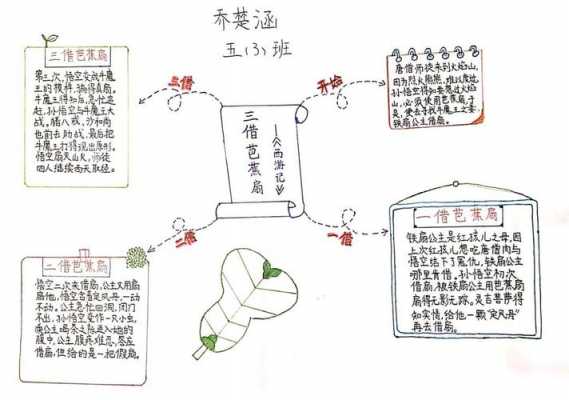 乔楚涵
五(3)班
三借芭蕉扇
——《西游记》
开始
唐僧师徒来到火焰山,
因为烈火熊熊,难以度过,
孙悟空得知要想过火焰
山,必须使用芭蕉扇,于
是,便去寻找牛魔王之妻,
铁扇公主借扇。
一借
一借芭蕉扇
铁扇公主是红孩儿之母,因
上次红孩儿想吃唐僧肉与
悟空结下了冤仇,铁扇公主
那里肯借。孙悟空初次
借扇,被铁扇公主用芭蕉扇
扇得无影无踪。灵吉菩萨得
知实情,给他一颗“定风丹”
再去借扇。
二借
二借芭蕉扇
悟空二次来借扇,公主又用扇
扇他,悟空含着定风丹,一动
不动。公主急忙回洞,闭门
不出,孙悟空变作一只小虫,
乘公主喝茶之际进入她的
腹中,公主腹疼难忍,答应
借扇,但给的是一把假扇。
三借
三借芭蕉扇
第三次,悟空变成牛魔
王的模样,骗得真扇。
牛魔王得知后,急忙追
赶,孙悟空与牛魔王大
战。猪八戒,沙和尚
也前去助战,最后把
牛魔王打得现出原形。
悟空扇灭山火,师徒
四人继续西天取经。